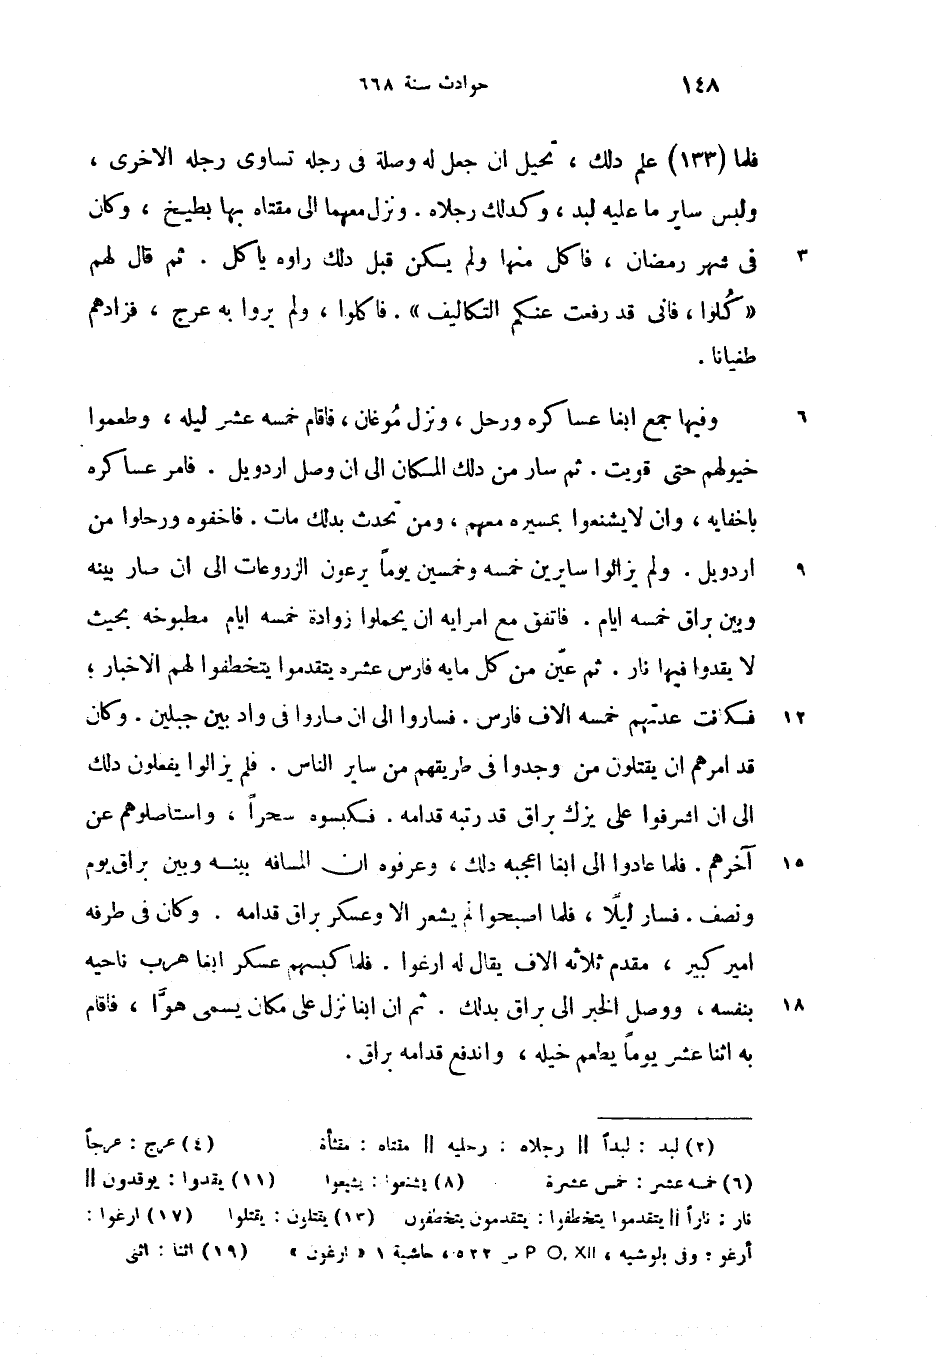 ١٤٨ حوادث سنة ٦٦٨
فلما (١٣٣) علم دلك ، تحيل ان جعل له وصلة فى رجله تساوى رجله الاخرى ،
ولبس ساير ما عليه لبد ، وكدلك رجلاه . ونزل معهما الى مقتاه بها بطيخ ، وكان
٣ فى شهر رمضان ، فاكل منها ولم يكن قبل دلك راوه ياكل . ثم قال لهم
« كُلوا ، فانى قد رفعت عنكم التكاليف » . فاكلوا ، ولم يروا به عرج ، فزادهم
طغيانا .
٦ وفيها جمع ابغا عساكره ورحل ، ونزل مُوغان ، فاقام خمسه عشر ليله ، وطعموا
خيولهم حتى قويت . ثم سار من دلك المكان الى ان وصل اردويل . فامر عساكره
باخفايه ، وان لا يشنعوا بمسيره معهم ، ومن تحدث بدلك مات . فاخفوه ورحلوا من
٩ اردويل . ولم يزالوا سايرين خمسه وخمسين يوماً يرعون الزروعات الى ان صار بينه
وبين براق خمسه ايام . فاتفق مع امرايه ان يحملوا زوادة خمسه ايام مطبوخه بحيث
لا يقدوا فيها نار . ثم عيّن من كل مايه فارس عشره يتقدموا يتخطفوا لهم الاخبار ؛
١٢ فكانت عدتهم خمسه الاف فارس . فساروا الى ان صاروا فى واد بين جبلين . وكان
قد امرهم ان يقتلون من وجدوا فى طريقهم من ساير الناس . فلم يزالوا يفعلون دلك
الى ان اشرفوا على يزك براق قد رتبه قدامه . فكبسوه سحراً ، واستاصلوهم عن
١٥ آخرهم . فلما عادوا الى ابغا اعجبه دلك ، وعرفوه ان المسافه بينه وبين براق يوم
ونصف . فسار ليلًا ، فلما اصبحوا لم يشعر الا وعسكر براق قدامه . وكان فى طرفه
امير كبير ، مقدم ثلاثه الاف يقال له ارغوا . فلما كبسهم عسكر ابغا هرب ناحيه
١٨ بنفسه ، ووصل الخبر الى براق بدلك . ثم ان ابغا نزل على مكان يسمى هوّا ، فاقام
به اثنا عشر يوماً يطعم خيله ، واندفع قدامه براق .
(٢) لبد : لبداً || رجلاه : رجليه || مقتاه : مقثأة (٤) عرج : عرجاً
(٦) خمسه عشر : خمس عشرة (٨) يشنعوا : يشيعوا (١١) يقدوا : يوقدون ||
نار : ناراً || يتقدموا يتخطفوا : يتقدمون يتخطفون (١٣) يقتلون : يقتلوا (١٧) ارغوا :
أرغو : وفى بلوشيه ، P O, XII ص ٥٢٢ ، حاشية ١ « ارغون » (١٩) اثنا : اثنى